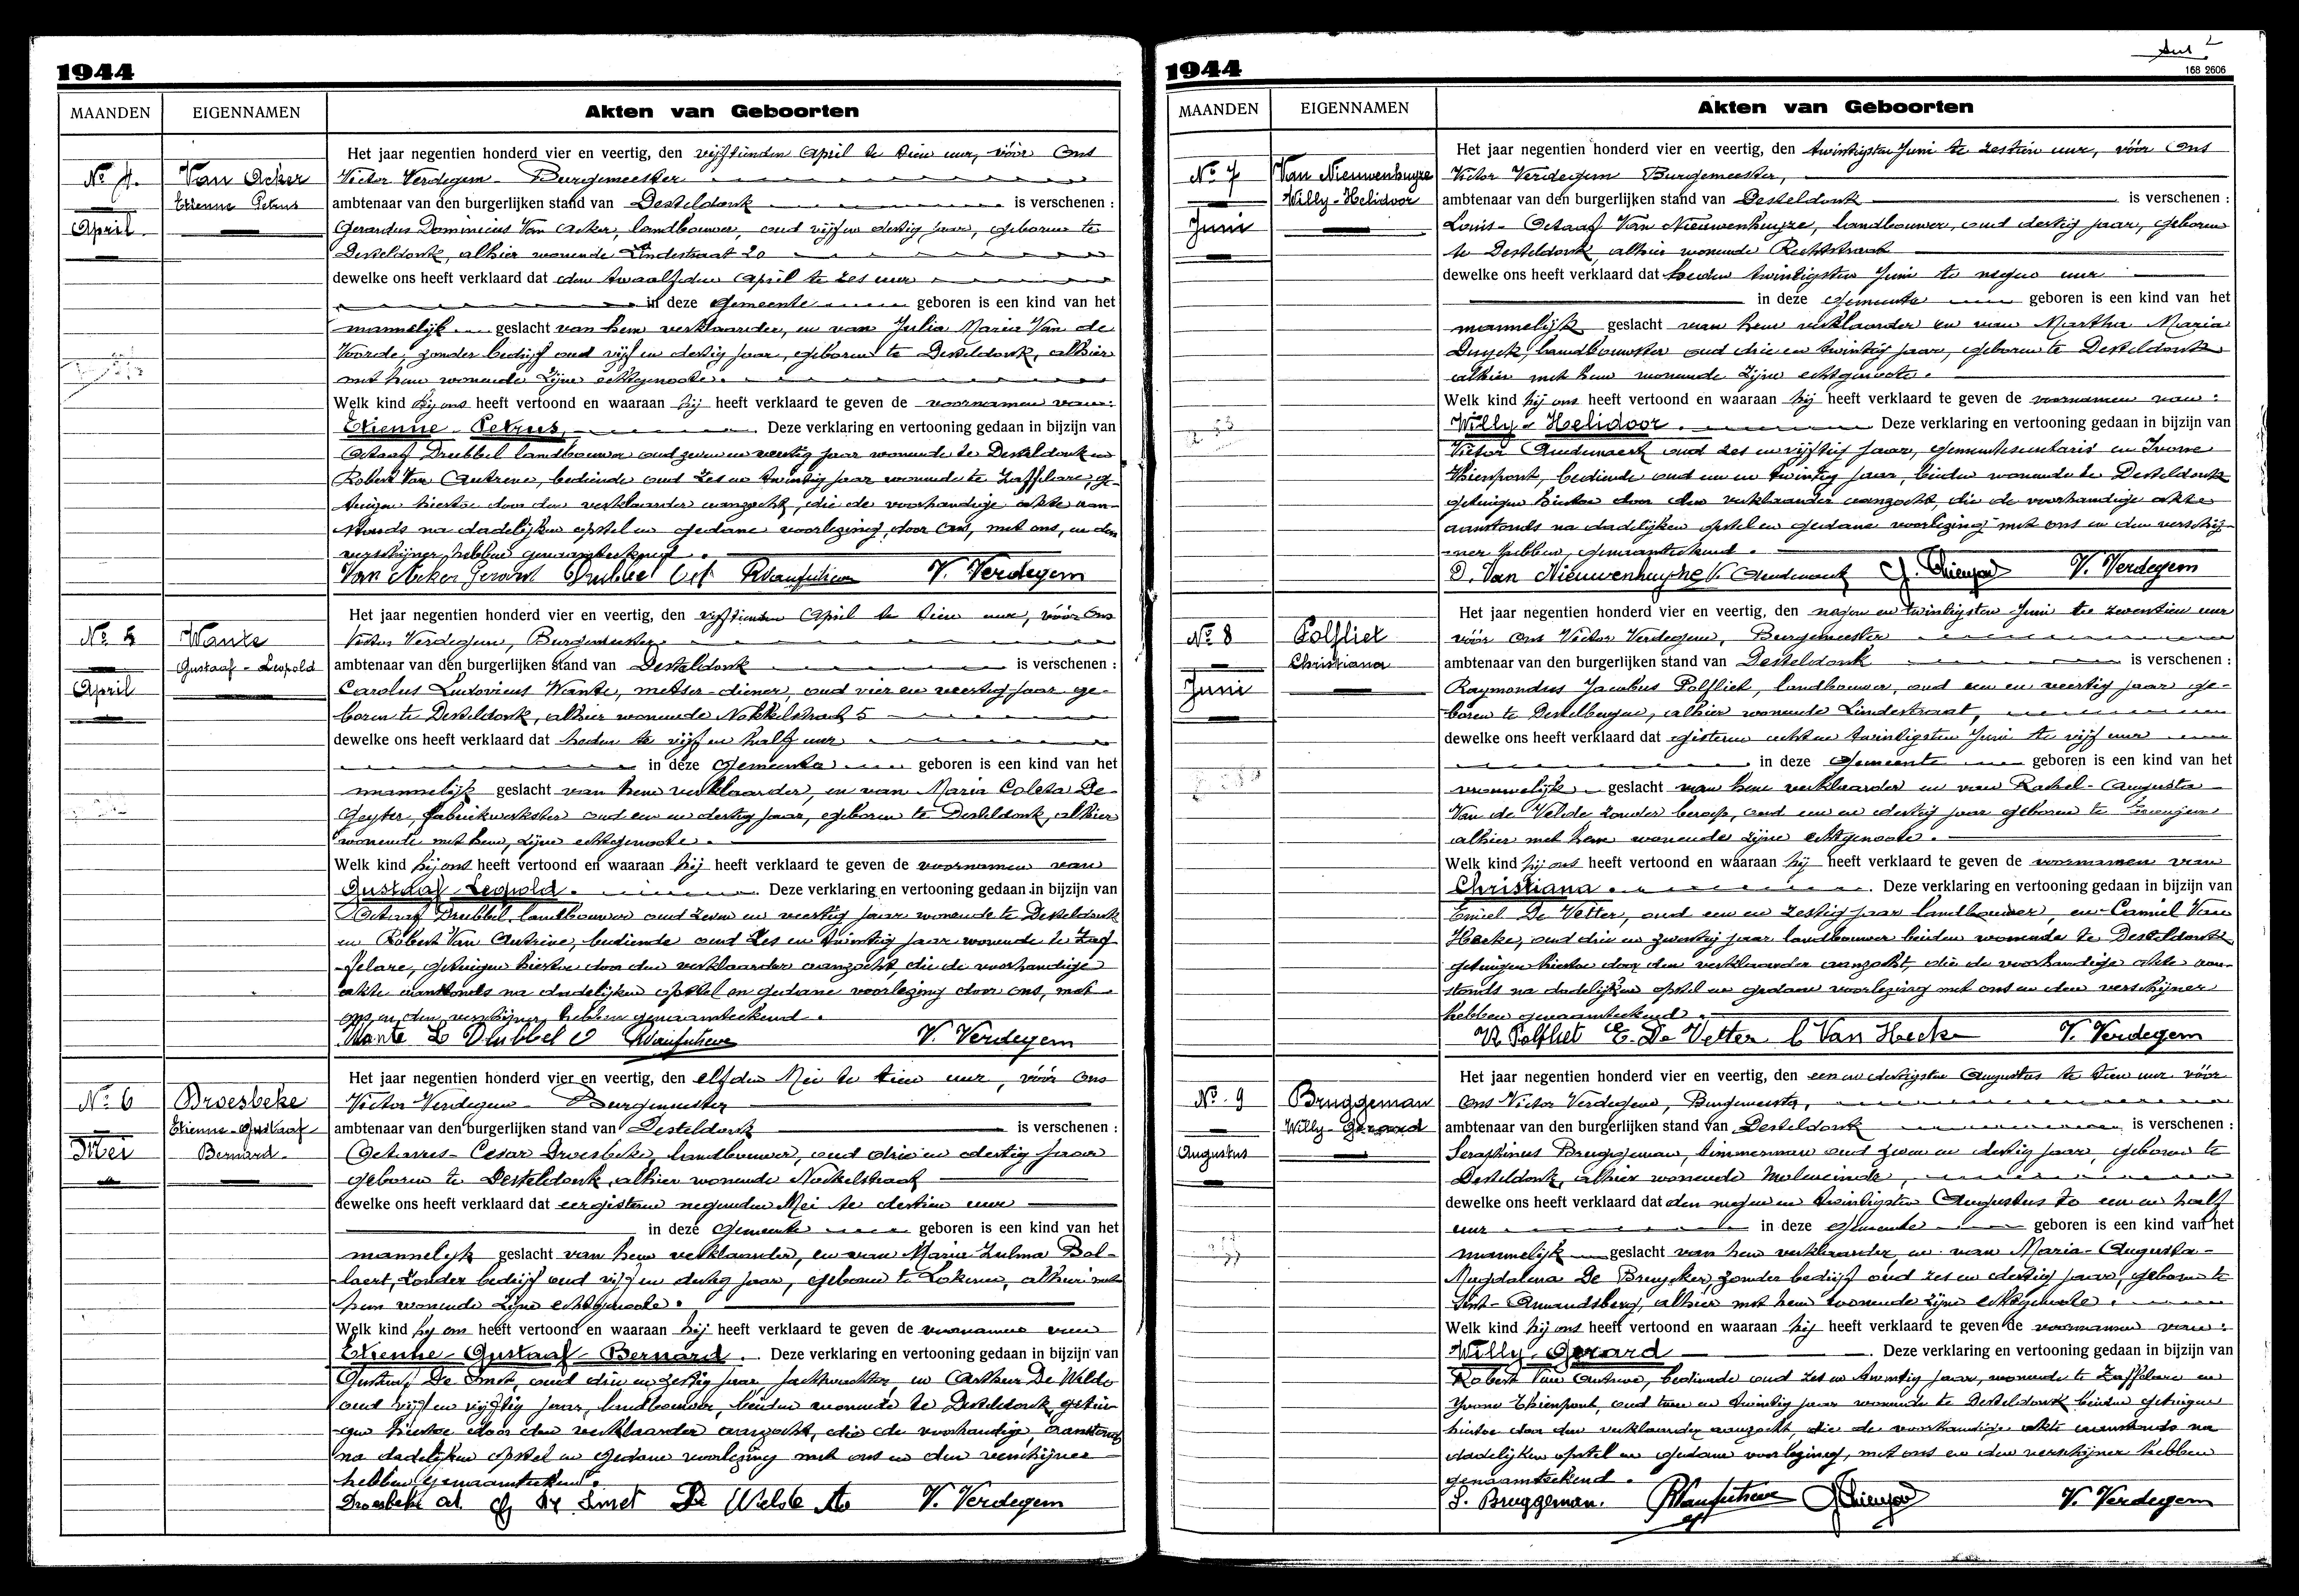 1944
MAANDEN EIGENNAMEN Akten van Geboorten
Het jaar negentien honderd vier en veertig, den vijftienden April te tien uur, vóór Ons
No 4. Van Acker Victor Verdegem - Burgemeester
Etienne Petrus ambtenaar van den burgerlijken stand van Desteldonk is verschenen :
April Gerardus Dominicus Van Acker, landbouwer, oud vijf en dertig jaar, geboren te
Desteldonk, alhier wonende Lindestraat 20
dewelke ons heeft verklaard dat den twaalfden April te zes uur
in deze Gemeente geboren is een kind van het
mannelijk geslacht van hem verklaarder, en van Julia Maria Van de
Voorde, zonder bedrijf oud vijf en dertig jaar, geboren te Desteldonk, alhier
met hem wonende zijne echtgenoote.
Welk kind hij ons heeft vertoond en waaraan hij heeft verklaard te geven de voornamen van:
Etienne - Petrus. Deze verklaring en vertooning gedaan in bijzijn van
Octaaf Drubbel landbouwer oud zeven en veertig jaar wonende te Desteldonk en
Robert Van Autreve, bediende oud zes en twintig jaar wonende te Zaffelare, ge-
tuigen hiertoe door den verklaarder aanzocht, die de voorhandige akte aan-
stonds na dadelijken opstel en gedane voorlezing, door Ons, met ons, en den
verschijner, hebben genaamteekend.
Van Acker Gerard Drubbel Oct RVanautreve V. Verdegem
Het jaar negentien honderd vier en veertig, den vijftienden April te tien uur, vóór Ons
No 5 Wante Victor Verdegem, Burgemeester
Gustaaf - Leopold ambtenaar van den burgerlijken stand van Desteldonk is verschenen :
April Carolus Ludovicus Wante, metser-diener, oud vier en veertig jaar ge-
boren te Desteldonk, alhier wonende Nokkelstraat 5
dewelke ons heeft verklaard dat heden te vijf en half uur
in deze Gemeente geboren is een kind van het
mannelijk geslacht van hem verklaarder, en van Maria Coleta De
Geyter, fabriekwerkster oud een en dertig jaar, geboren te Desteldonk, alhier
wonende met hem, zijne echtgenoote.
Welk kind hij ons heeft vertoond en waaraan hij heeft verklaard te geven de voornamen van
Gustaaf Leopold. Deze verklaring en vertooning gedaan in bijzijn van
Octaaf Drubbel landbouwer oud zeven en veertig jaar wonende te Desteldonk
en Robert Van Autreve, bediende oud zes en twintig jaar wonende te Zaf-
felare, getuigen hiertoe door den verklaarder aanzocht, die de voorhandige
akte aanstonds na dadelijken opstel en gedane voorlezing door ons, met
ons en den verschijner, hebben genaamteekend.
Wante L Drubbel O RVanautreve V. Verdegem
Het jaar negentien honderd vier en veertig, den elfden Mei te tien uur, vóór Ons
No 6 Droesbeke Victor Verdegem - Burgemeester
Etienne-Gustaaf ambtenaar van den burgerlijken stand van Desteldonk is verschenen :
Mei Bernard Octavus - Cesar Droesbeke, landbouwer, oud drie en dertig jaar
geboren te Desteldonk, alhier wonende Nockelstraat
dewelke ons heeft verklaard dat eergisteren negenden Mei te dertien uur
in deze Gemeente geboren is een kind van het
mannelijk geslacht van hem verklaarder, en van Maria Zulma Bol-
laert, zonder bedrijf oud vijf en dertig jaar, geboren te Lokeren, alhier met
hem wonende zijne echtgenoote.
Welk kind hij ons heeft vertoond en waaraan hij heeft verklaard te geven de voornamen van
Etienne - Gustaaf - Bernard. Deze verklaring en vertooning gedaan in bijzijn van
Gustaaf De Smet, oud drie en zestig jaar, jachtwachter, en Arthur De Wilde
oud vijf en vijftig jaar, landbouwer, beiden wonende te Desteldonk, getui-
gen hiertoe door den verklaarder aanzocht, die de voorhandige, aanstonds
na dadelijken opstel en gedane voorlezing met ons en den verschijner
hebben genaamteekend.
Droesbeke oct. G De Smet De Wilde A V. Verdegem
1944
168 2606
MAANDEN EIGENNAMEN Akten van Geboorten
Het jaar negentien honderd vier en veertig, den twintigsten Juni te zestien uur, vóór Ons
No 7 Van Nieuwenhuyze Victor Verdegem Burgemeester,
Willy-Helidoor ambtenaar van den burgerlijken stand van Desteldonk is verschenen :
Juni Louis - Octaaf Van Nieuwenhuyze, landbouwer, oud dertig jaar, geboren
te Desteldonk, alhier wonende Rechtstraat
dewelke ons heeft verklaard dat heden twintigsten Juni te negen uur
in deze Gemeente geboren is een kind van het
mannelijk geslacht van hem verklaarder en van Martha Maria
Duyck, landbouwster oud drie en twintig jaar, geboren te Desteldonk
alhier met hem wonende zijne echtgenoote.
Welk kind hij ons heeft vertoond en waaraan hij heeft verklaard te geven de voornamen van:
Willy - Helidoor. Deze verklaring en vertooning gedaan in bijzijn van
Victor Audenaert oud zes en vijftig jaar, gemeentesecretaris en Ivonne
Thienpont, bediende oud een en twintig jaar, beiden wonende te Desteldonk
getuigen hiertoe door den verklaarder aanzocht, die de voorhandige akte
aanstonds na dadelijken opstel en gedane voorlezing met ons en den verschij-
ner hebben, genaamteekend.
O. Van Nieuwenhuyze V. Audenaert Y. Thienpont V. Verdegem
Het jaar negentien honderd vier en veertig, den negen en twintigsten Juni te zeventien uur
No 8 Polfliet vóór Ons Victor Verdegem, Burgemeester
Christiana ambtenaar van den burgerlijken stand van Desteldonk is verschenen :
Juni Raymondus Jacobus Polfliet, landbouwer, oud een en veertig jaar ge-
boren te Destelbergen, alhier wonende Lindestraat,
dewelke ons heeft verklaard dat gisteren acht en twintigsten Juni te vijf uur
in deze Gemeente geboren is een kind van het
vrouwelijk geslacht van hem verklaarder en van Rachel - Augusta
Van de Velde zonder beroep, oud een en dertig jaar geboren te Evergem
alhier met hem wonende zijne echtgenoote.
Welk kind hij ons heeft vertoond en waaraan hij heeft verklaard te geven de voornamen van
Christiana. Deze verklaring en vertooning gedaan in bijzijn van
Emiel De Vetter, oud een en zestig jaar landbouwer, en Camiel Van
Hecke, oud drie en zeventig jaar landbouwer beiden wonende te Desteldonk
getuigen hiertoe door den verklaarder aanzocht, die de voorhandige akte aan-
stonds na dadelijken opstel en gedane voorlezing met ons en den verschijner
hebben genaamteekend.
R Polfliet E. De Vetter C Van Hecke V. Verdegem
Het jaar negentien honderd vier en veertig, den een en dertigsten Augustus te tien uur vóór
No 9 Bruggeman Ons Victor Verdegem, Burgemeester,
Willy-Gerard ambtenaar van den burgerlijken stand van Desteldonk is verschenen :
Augustus Seraphinus Bruggeman, timmerman oud twee en dertig jaar, geboren te
Desteldonk, alhier wonende Moleneinde,
dewelke ons heeft verklaard dat den negen en twintigsten Augustus te een en half
uur in deze Gemeente geboren is een kind van het
mannelijk geslacht van hem verklaarder, en van Maria - Augusta -
Magdalena De Bruycker, zonder bedrijf oud zes en dertig jaar, geboren te
Sint-Amandsberg, alhier met hem wonende zijne echtgenoote.
Welk kind hij ons heeft vertoond en waaraan hij heeft verklaard te geven de voornamen van:
Willy - Gerard. Deze verklaring en vertooning gedaan in bijzijn van
Robert Van Autreve, bediende oud zes en twintig jaar, wonende te Zaffelare en
Yvonne Thienpont, oud een en twintig jaar wonende te Desteldonk beiden getuigen
hiertoe door den verklaarder aanzocht, die de voorhandige akte aanstonds na
dadelijken opstel en gedane voorlezing, met ons en den verschijner hebben
genaamteekend.
S. Bruggeman. RVanautreve YThienpont V. Verdegem